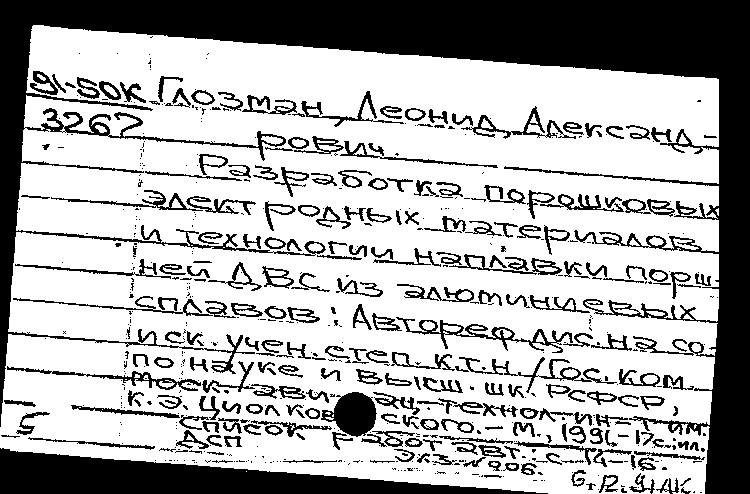 91-50К Глозман, Леонид, Александ,-
3267
рович.
Разработка порошковых
электродных материалов
и технологии наплавки порш-
ней ДВС из алюминиевых
сплавов: Автореф. дис. на со-
иск. учен. степ. к.т.н. / Гос. ком.
по науке и высш. шк. РСФСР,
Моск. ави ац.-технол. ин-т им.
К.Э. Циолков ского. - М., 1991.-17с.; ил.
Список работ авт.: с 14-16.
ДСП
Экз № 206.